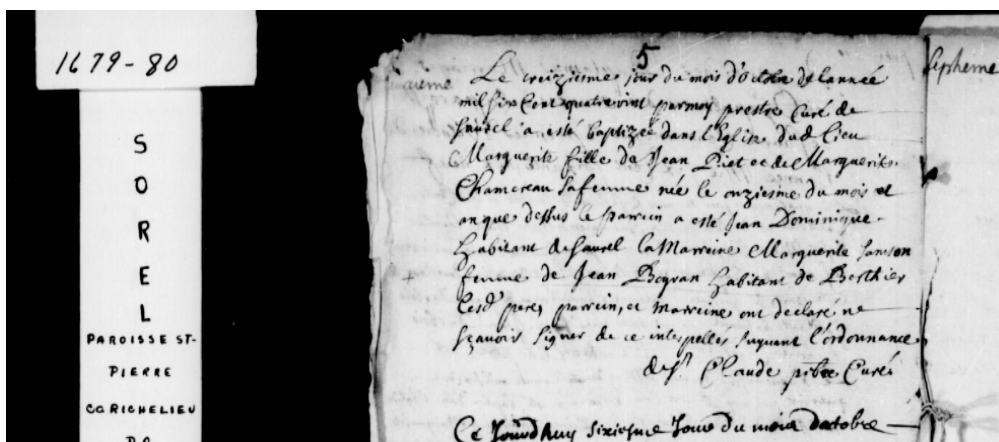 1679-80
S
O
R
E
L
PAROISSE ST-
PIERRE
CO. RICHELIEU
P.Q.
5
Le treiziesme jour du mois d'octobre de l'année
mil six Cent quatre vint par moy prestre Curé de
Saurel a esté baptizée dans l'Eglise dud Lieu
Marguerite fille de Jean Piet et de Marguerite
Chamereau sa femme née le onziesme du mois et
an que dessus le parrein a esté Jean Dominique
habitant de Saurel la Marreine Marguerite Samson
femme de Jean Begran habitant de Berthier
lesd pere, parrein, et marreine ont declaré ne
sçavoir signer de ce interpelles suyvant l'ordonnance
Claude pbre Curé
Ce Jourdhuy sixiesme Jour du mois doctobre